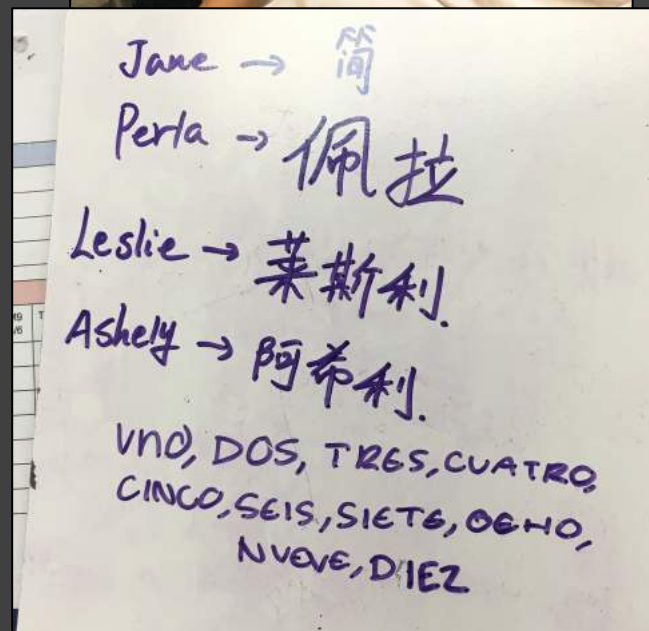 Jane → 简
Perla → 佩拉
Leslie → 莱斯利.
Ashely → 阿希利.
UNO, DOS, TRES, CUATRO,
CINCO, SEIS, SIETE, OCHO,
NUEVE, DIEZ